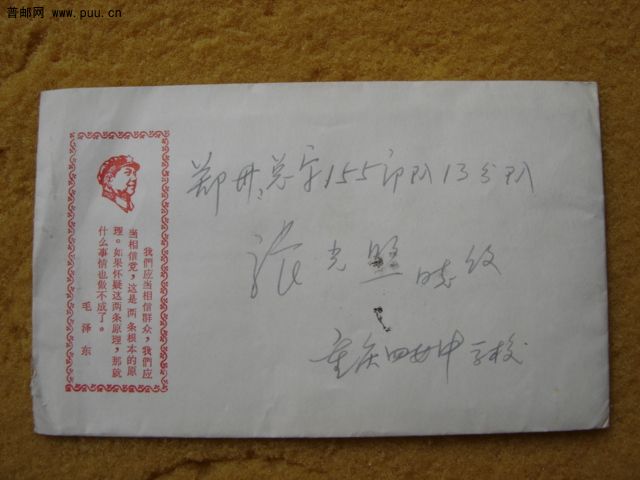 普邮网 www.puu.cn
郑州总字155部队13分队
张光照 收
重庆四女中学校
我們应当相信群众，我們应
当相信党，这是两条根本的原
理。如果怀疑这两条原理，那就
什么事情也做不成了。
毛泽东